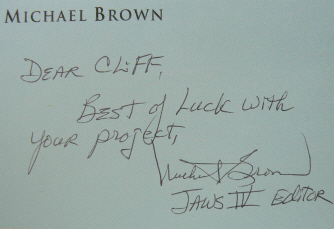 MICHAEL BROWN
DEAR CLIFF,
BEST of LUCK with
your project,
Michael Brown
JAWS IV EDITOR